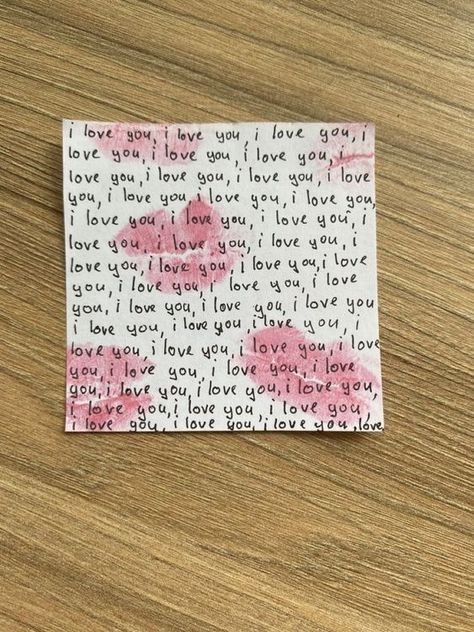 i love you, i love you, i love you, i
love you, i love you, i love you, i
love you, i love you, i love you, i love
you, i love you, i love you, i love you,
i love you, i love you, i love you, i
love you, i love you, i love you, i
love you, i love you, i love you, i love
you, i love you, i love you, i love
you, i love you, i love you, i love you
i love you, i love you, i love you, i
love you, i love you, i love you, i love
you, i love you, i love you, i love
you, i love you, i love you, i love you,
i love you, i love you, i love you,
i love you, i love you, i love you, love